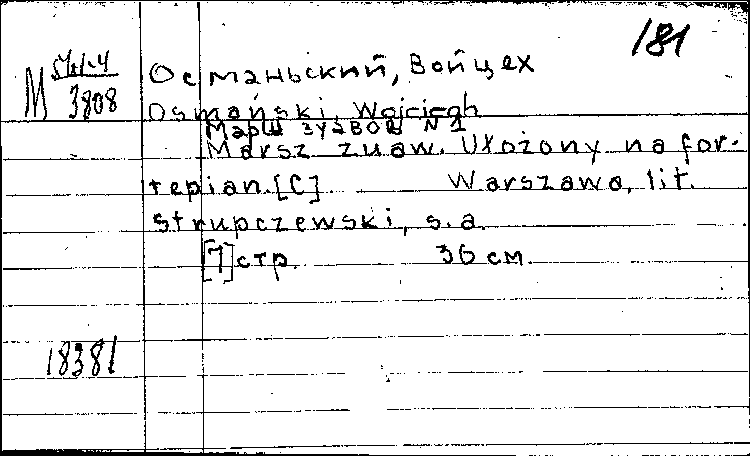 181
М 3808
Османьский, Войцех
Osmański, Wojciech
Марш зуавов N 1
Marsz zuaw. Ułożony na for-
tepian. [C] Warszawa, lit.
Strupczewski, s.a.
[1] стр. 36 см.
18381